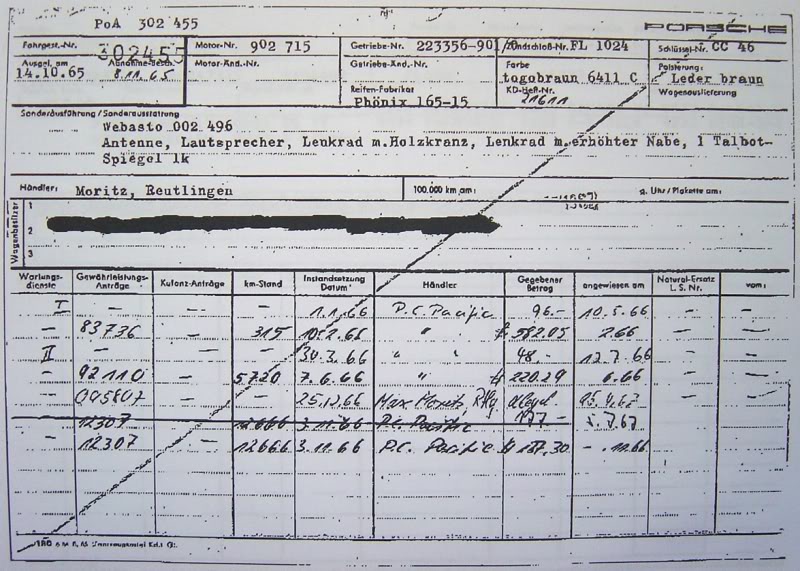 PoA 302 455
PORSCHE
Fahrgest.-Nr. 302455 Motor-Nr. 902 715 Getriebe-Nr. 223356-901/0 Zündschloß-Nr. FL 1024 Schlüssel-Nr. CC 46
Ausgel. am 14.10.65 8.11.65 Motor-Änd.-Nr. Getriebe-Änd.-Nr. Farbe togobraun 6411 C Polsterung: Leder braun
Reifen-Fabrikat Phönix 165-15 KD-Heft-Nr. 21611 Wagenauslieferung
Sonderausführung / Sonderausstattung
Webasto 002 496
Antenne, Lautsprecher, Lenkrad m.Holzkranz, Lenkrad m.erhöhter Nabe, 1 Talbot-
Spiegel lk
Händler: Moritz, Reutlingen 100.000 km am: g. Uhr / Plakette am:
Wagenbesitzer
1
2
3
Wartungs-dienste Gewährleistungs-Anträge Kulanz-Anträge km-Stand Instandsetzung Datum Händler Gegebener Betrag angewiesen am Natural-Ersatz L. S. Nr. vom:
I — — — 1.1.66 P.C. Pacific 96.— 10.5.66 — —
— 83736 — 315 10.2.66 " $ 582.05 2.66 — —
II — — — 30.3.66 " " 48.— 12.7.66 — —
— 92110 — 5720 7.6.66 " $ 220.29 6.66 — —
— — — 25.12.66 Max Moritz, Rtlg — —
12307 12666 3.11.66 P.C. Pacific
— 12307 — 12666 3.11.66 P.C. Pacific $ 187.30 — . 11.66 — —